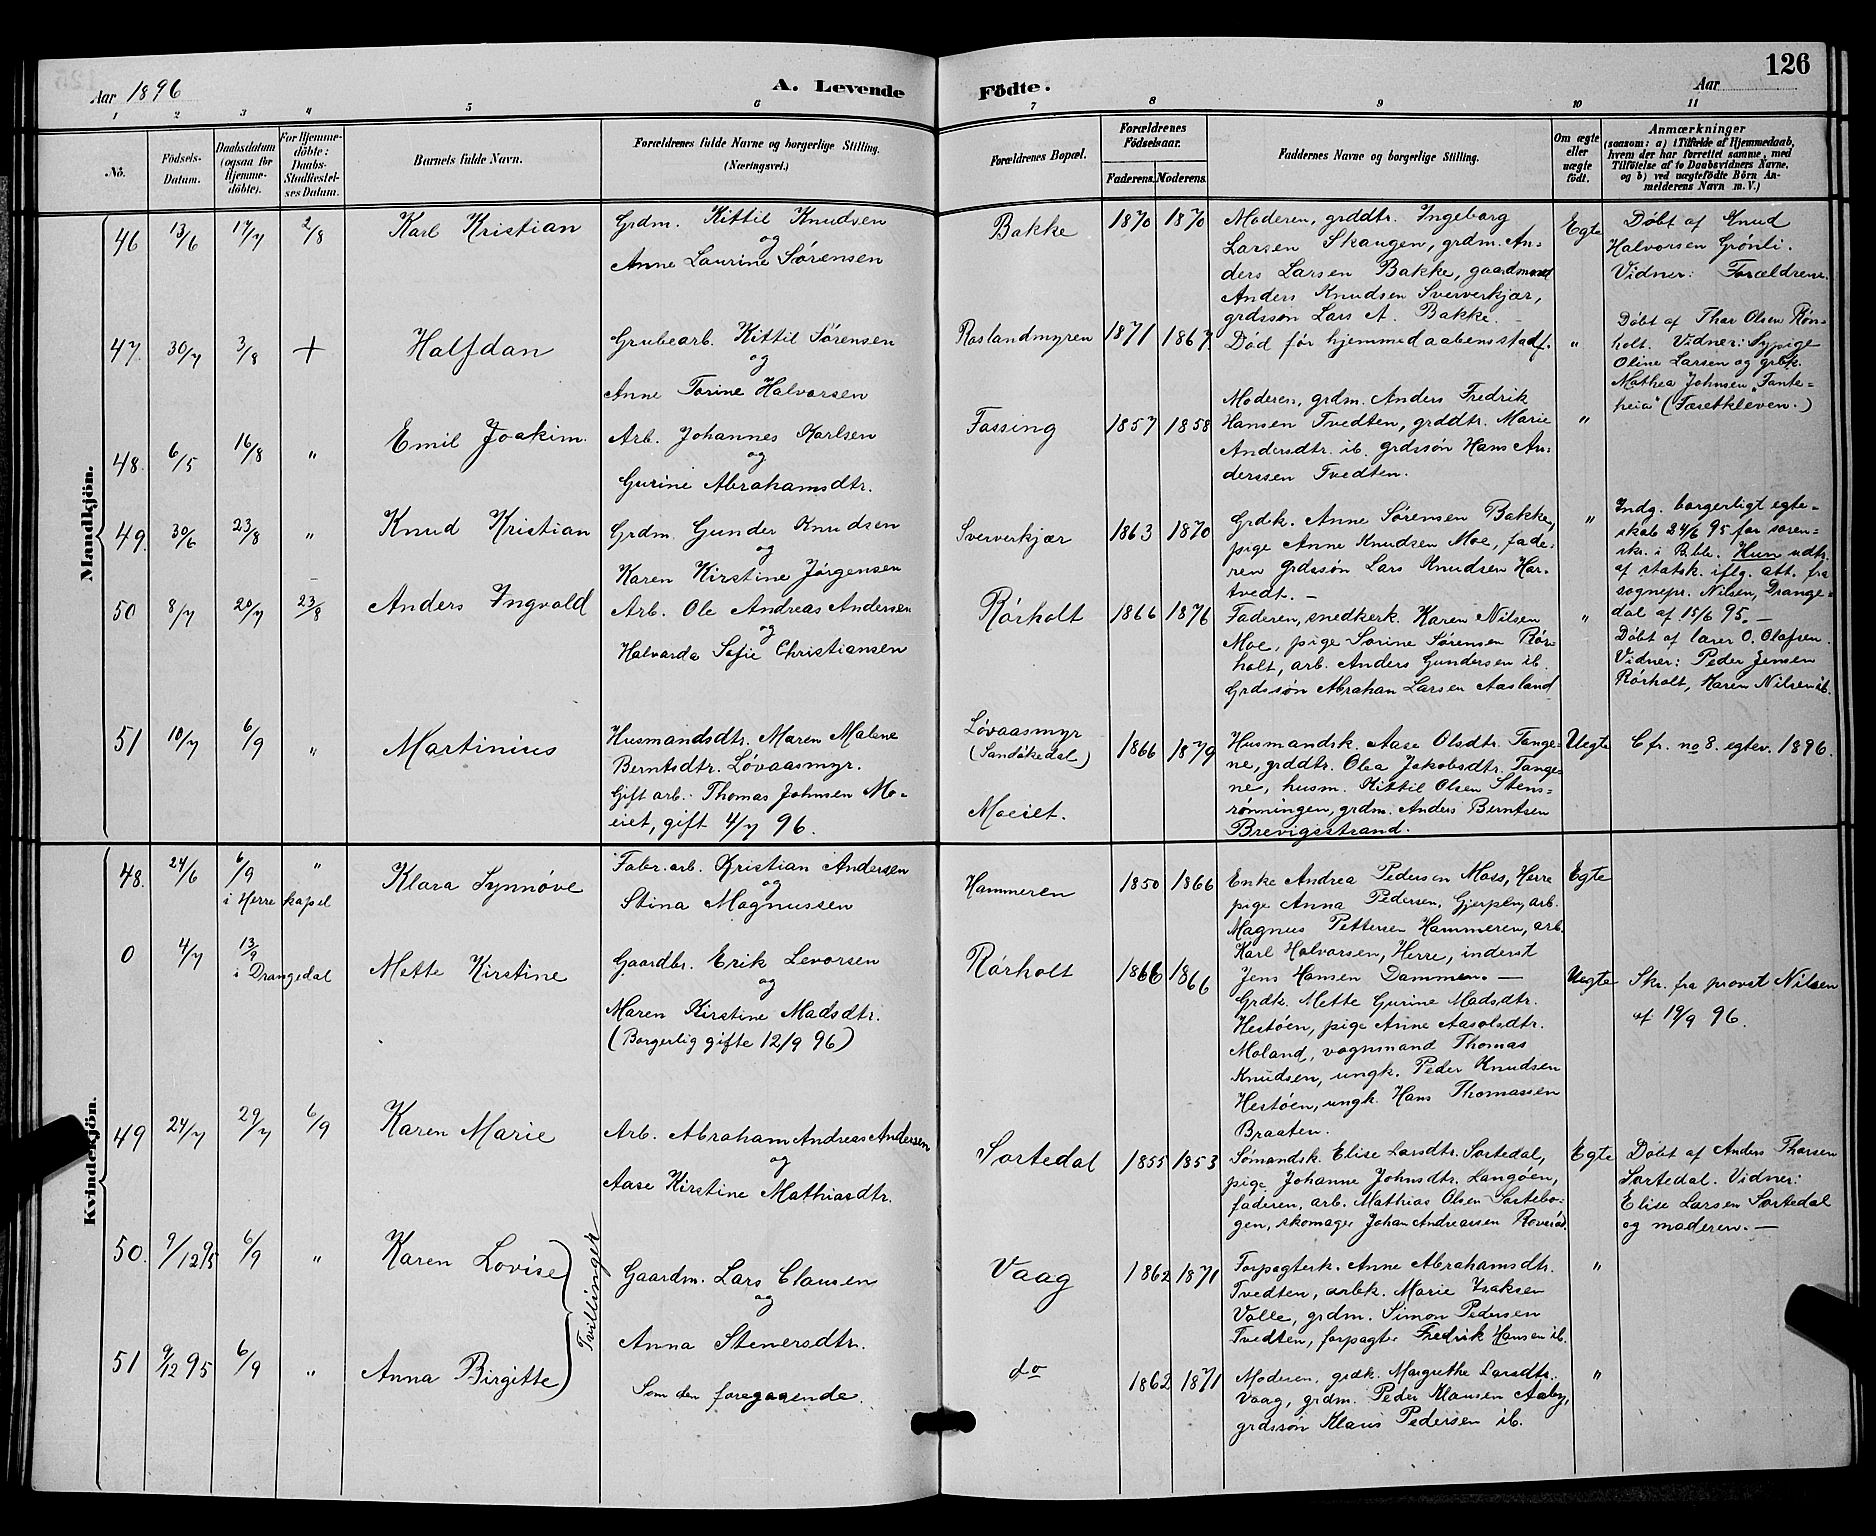 126
Aar 1896
A. Levende
Födte.
Aar
1 2 3 4 5 6 7 8 9 10 11
No.
Födsels-
Datum.
Daabsdatum
(ogsaa for
Hjemme-
döbte).
For Hjemme-
döbte:
Daabs-
Stadfæstel-
ses Datum.
Barnets fulde Navn.
Forældrenes fulde Navne og borgerlige Stilling.
(Næringsvei.)
Forældrenes Bopæl.
Forældrenes
Födselsaar.
Faderens.
Moderens.
Faddernes Navne og borgerlige Stilling.
Om ægte
eller
uægte
födt.
Anmærkninger
(saasom: a) i Tilfælde af Hjemmedaab,
hvem der har forrettet samme, med
Tilföielse af to Daabsvidners Navne,
og b) ved uægtefödte Börn An-
melderens Navn m. V.)
Mandkjön.
46 13/6 17/7 2/8 Karl Kristian
Grdm. Kittil Knudsen
og
Anne Laurine Sørensen
Bakke 1870 1870
Moderen, grddtr. Ingeborg
Larsen Skaugen, grdm. An-
ders Larsen Bakke, gaardmand
Anders Knudsen Sververkjær,
grdssøn Lars A. Bakke.
Egte
Døbt af Knud
Halvorsen Grønli.
Vidner: Forældrene.
47. 30/7 3/8 + Halfdan
Grubearb. Kittil Sørensen
og
Anne Torine Halvorsen
Roslandmyren 1871 1867.
Død før hjemmedaabens stadf.
"
Døbt af Thor Olsen Røn-
holt. Vidner: Sypige
Oline Larsen og grbk.
Mathea Johnsen "Tante-
heia" (Fosetkleven.)
48. 6/5 16/8 " Emil Joakim.
Arb. Johannes Karlsen
og
Gurine Abrahamsdtr.
Fossing 1857 1858
Moderen, grdm. Anders Fredrik
Hansen Tvedten, grddtr. Marie
Andersdtr. ib. grdssøn Hans An-
derssen Tvedten.
"
49. 30/6 23/8 " Knud Kristian
Grdm. Gunder Knudsen
og
Karen Kirstine Jørgensen
Sververkjær 1863 1870
Grdk. Anne Sørensen Bakke,
pige Anne Knudsen Moe, fade-
ren grdssøn Lars Knudsen Har-
tvedt. -
"
Indg. borgerligt egte-
skab 24/6 95 for soren-
skr. i Bble. Hun udtr.
af statsk. iflg. att. fra
sognepr. Nilsen, Drange-
dal af 15/6 95. -
50 8/7 20/7 23/8 Anders Ingvald
Arb. Ole Andreas Andersen
og
Halvarda Sofie Christiansen
Rörholt 1866 1876
Faderen, snedkerk. Karen Nilsen
Moe, pige Sorine Sørensen Rör-
holt, arb. Anders Gundersen ib.
Grdssøn Abrahan Larsen Aasland
"
Döbt af lærer O. Olafsen.
Vidner: Peder Jensen
Rörholt, Karen Nilsen ib.
51 10/7 6/9 " Martinius
Husmandsdtr. Maren Malene
Berntsdtr. Løvaasmyr.
Gift arb. Thomas Johnsen Mo-
eiet, gift 4/7 96.
Løvaasmyr
(Sandøkedal)
Moeiet.
1866 1879
Husmandsk. Aase Olsdtr. Tange-
ne, grddtr. Olea Jakobsdtr. Tange-
ne, husm. Kittil Olsen Stens-
rønningen, grdm. Anders Berntsen
Brevigsstrand.
Uegte
Cfr. no 8. egtev. 1896.
Kvindekjön.
48. 24/6 6/9 "
i Herre kapel
Klara Synnøve
Fabr. arb. Kristian Andersen
og
Stina Magnussen
Hammeren 1850 1866
Enke Andrea Pedersen Moss, Herre
pige Anna Pedersen, Gjerpen, arb.
Magnus Pettersen Hammeren, arb.
Karl Halvorsen, Herre, inderst
Jens Hansen Dammen. -
Egte
0 4/7 13/9
i Drangedal
Mette Kirstine
Gaardbr. Erik Levorsen
og
Maren Kirstine Madsdtr.
(Borgerlig gifte 12/9 96)
Rörholt 1866 1866
Grdk. Mette Gurine Madsdtr.
Hestöen, pige Anne Aasolsdtr.
Moland, vognmand Thomas
Knudsen, ungk. Peder Knudsen
Hestöen, ungk. Hans Thomassen
Braaten.
Uegte
Skr. fra provst Nilsen
af 19/9 96.
49 24/7 29/7 6/9 Karen Marie
Arb. Abraham Andreas Andersen
og
Aase Kirstine Mathiasdtr.
Sortedal 1855 1853
Sømandsk. Elise Larsdtr. Sortedal,
pige Johanne Johnsdtr. Langöen,
faderen, arb. Mathias Olsen Sortebo-
gen, skomager Johan Andreassen
Egte
Döbt af Anders Thorsen
Sortedal. Vidner:
Elise Larsen Sortedal
og moderen. -
50. 9/12 95 6/9 " Karen Lovise
Tvillinger
Gaardm. Lars Clausen
og
Anna Stenersdtr.
Vaag 1862 1871
Forpagterk. Anne Abrahamsdtr.
Tvedten, arbk. Marie Isaksen
Valle, grdm. Simon Pedersen
Tvedten, forpagter Fredrik Hansen ib.
"
51 9/12 95 6/9 " Anna Birgitte
Som den foregaaende.
do 1862 1871
Moderen, grdk. Margrethe Larsdtr.
Vaag, grdm. Peder Klausen Aaby,
grdssøn Klaus Pedersen ib.
"